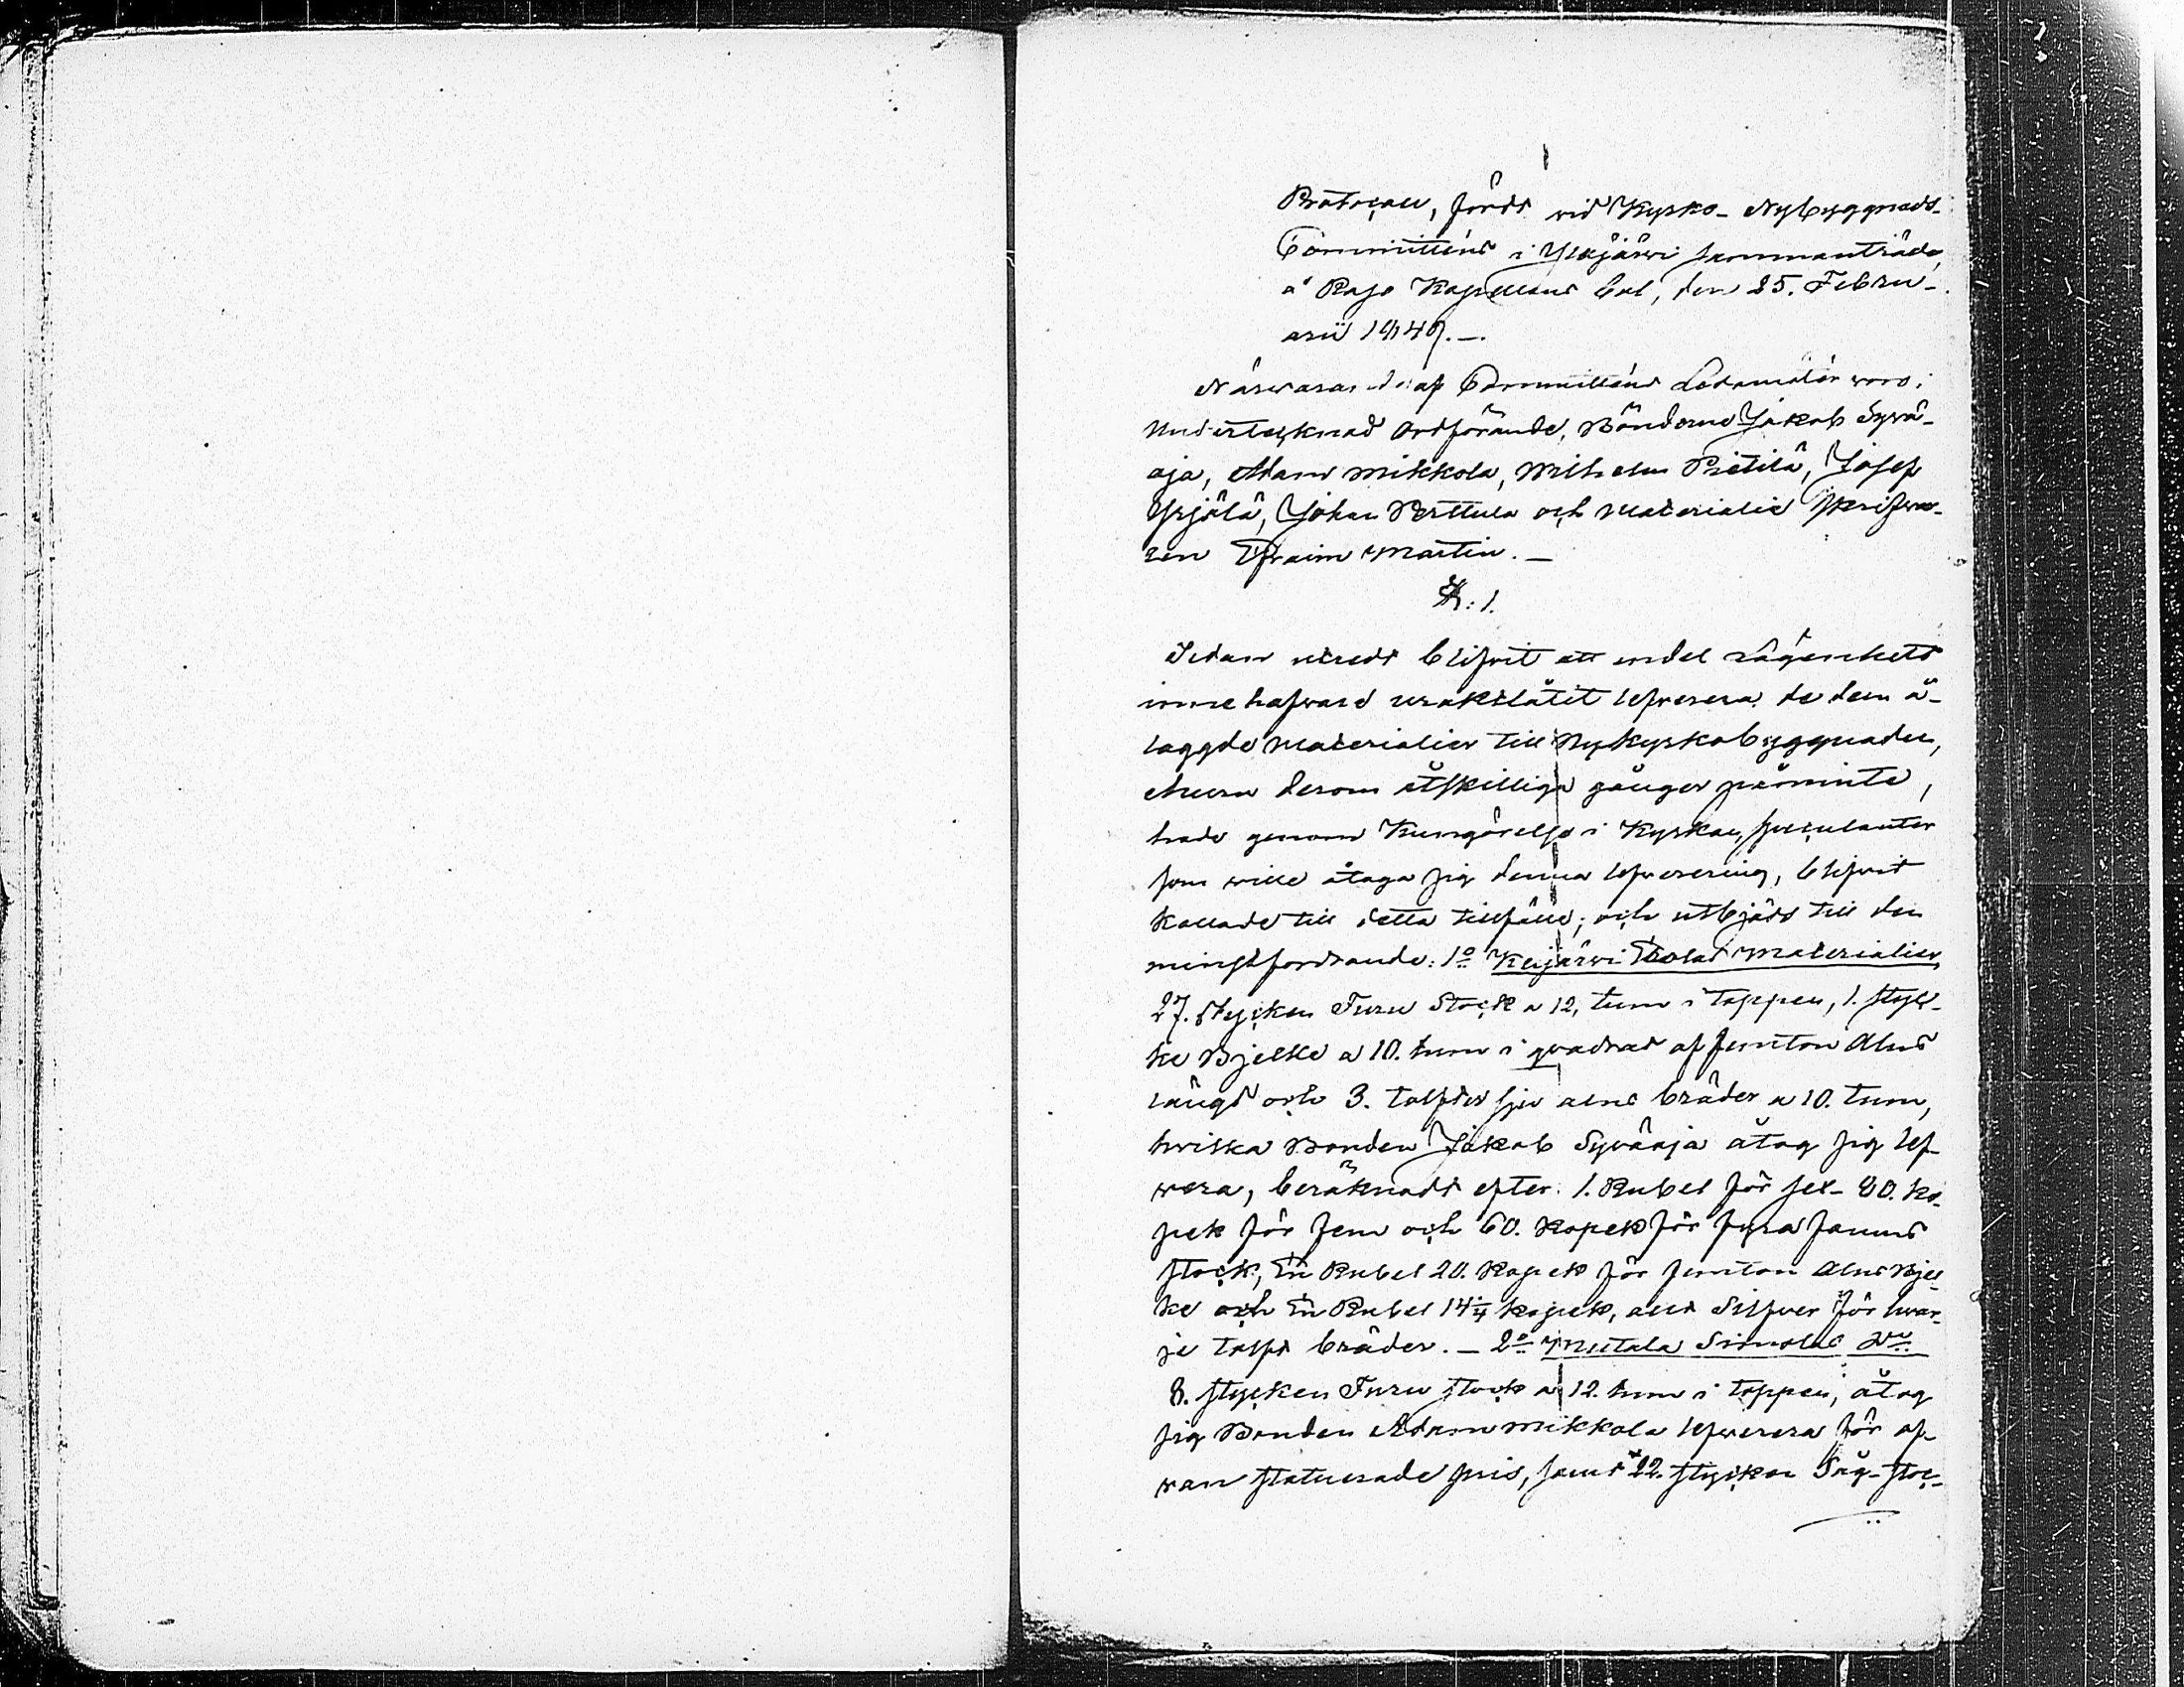 Protocoll, fördt vid Kyrko-Nybyggnads-
Committéns i Ylöjärvi sammanträde,
å Rajo Kapellans bol, den 25. Febru-
arii 184
Närvarande af Committéns Ledamöter voro:
Undertecknad Ordförande, Bönderne Jakob Syvä-
oja, Adam Mikkola, Wilhelm Pietilä, Josef
Yrjölä, Johan Perttula och Materialie skrifva-
ren Efraim Martin. —
§: 1.
Sedan utredt blifvit att endel lägenhets
innehafvare uraktlåtit lefverera de dem å-
laggde Materialier till Nykyrkobyggnaden,
ehuru derom åtskilliga gånger påminte,
hade genom Kungörelse i Kyrkan, speculanter
som ville åtaga sig denna lefverering, blifvit
kallade till detta tillfälle; och utbjöds till den
minstfordrande: 1o Keijärvi Materialier,
27. Stycken Furu Stock a 12, tum i Toppen, 1. styc-
ke Bjelke a 10. tum i qvadrat af femton Alns
längd och 3. tolfter sju alns bräder a 10. tum,
hvilka Bonden Jakob Syväoja åtog sig lef-
vera, beräknadt efter: 1. Rubel för sex- 80. ko-
pek för fem och 60. Kopek för fyra famns
stock, En Rubel 20. Kopek för femton Alns Bjel-
ke och En Rubel 14 1/4 kopek, allt Silfver för hvar-
je tolft bräder. — 2o Mutala Simolas
8. stycken Furu stock a 12. tum i toppen, åtog
sig Bonden Adam Mikkola lefverera för of-
van statuerade pris, samt 22. stycken Såg-stoc-